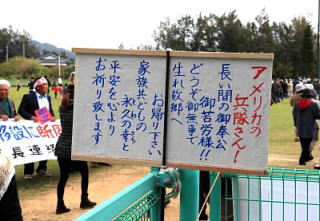 アメリカの
兵隊さん!
長い間の御奉公
御苦労様!!
どうぞ御無事で
生れ故郷へ
お帰り下さい
家族共どもの
永久の幸と
平安を心より
お祈り致します
設に断
長連